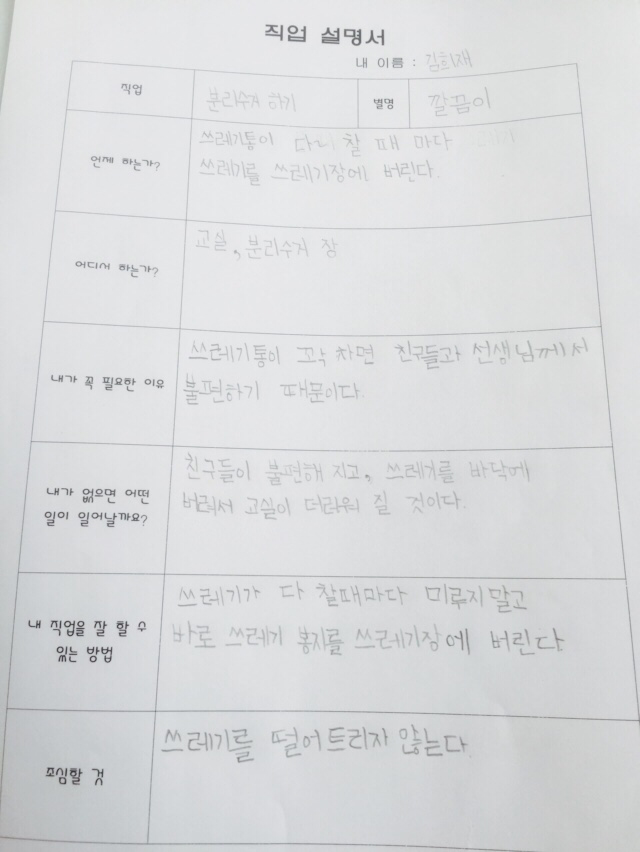 직업 설명서
내 이름 : 김희재
직업
분리수거 하기
별명
깔끔이
언제 하는가?
쓰레기통이 다 찰 때 마다
쓰레기를 쓰레기장에 버린다.
어디서 하는가?
교실, 분리수거 장
내가 꼭 필요한 이유
쓰레기통이 꼬낙 차면 친구들과 선생님께서
불편하기 때문이다.
내가 없으면 어떤
일이 일어날까요?
친구들이 불편해 지고, 쓰레기를 바닥에
버려서 교실이 더러워 질 것이다.
내 직업을 잘 할 수
있는 방법
쓰레기가 다 찰때마다 미루지 말고
바로 쓰레기 봉지를 쓰레기장에 버린다
조심할 것
쓰레기를 떨어트리자 않는다.